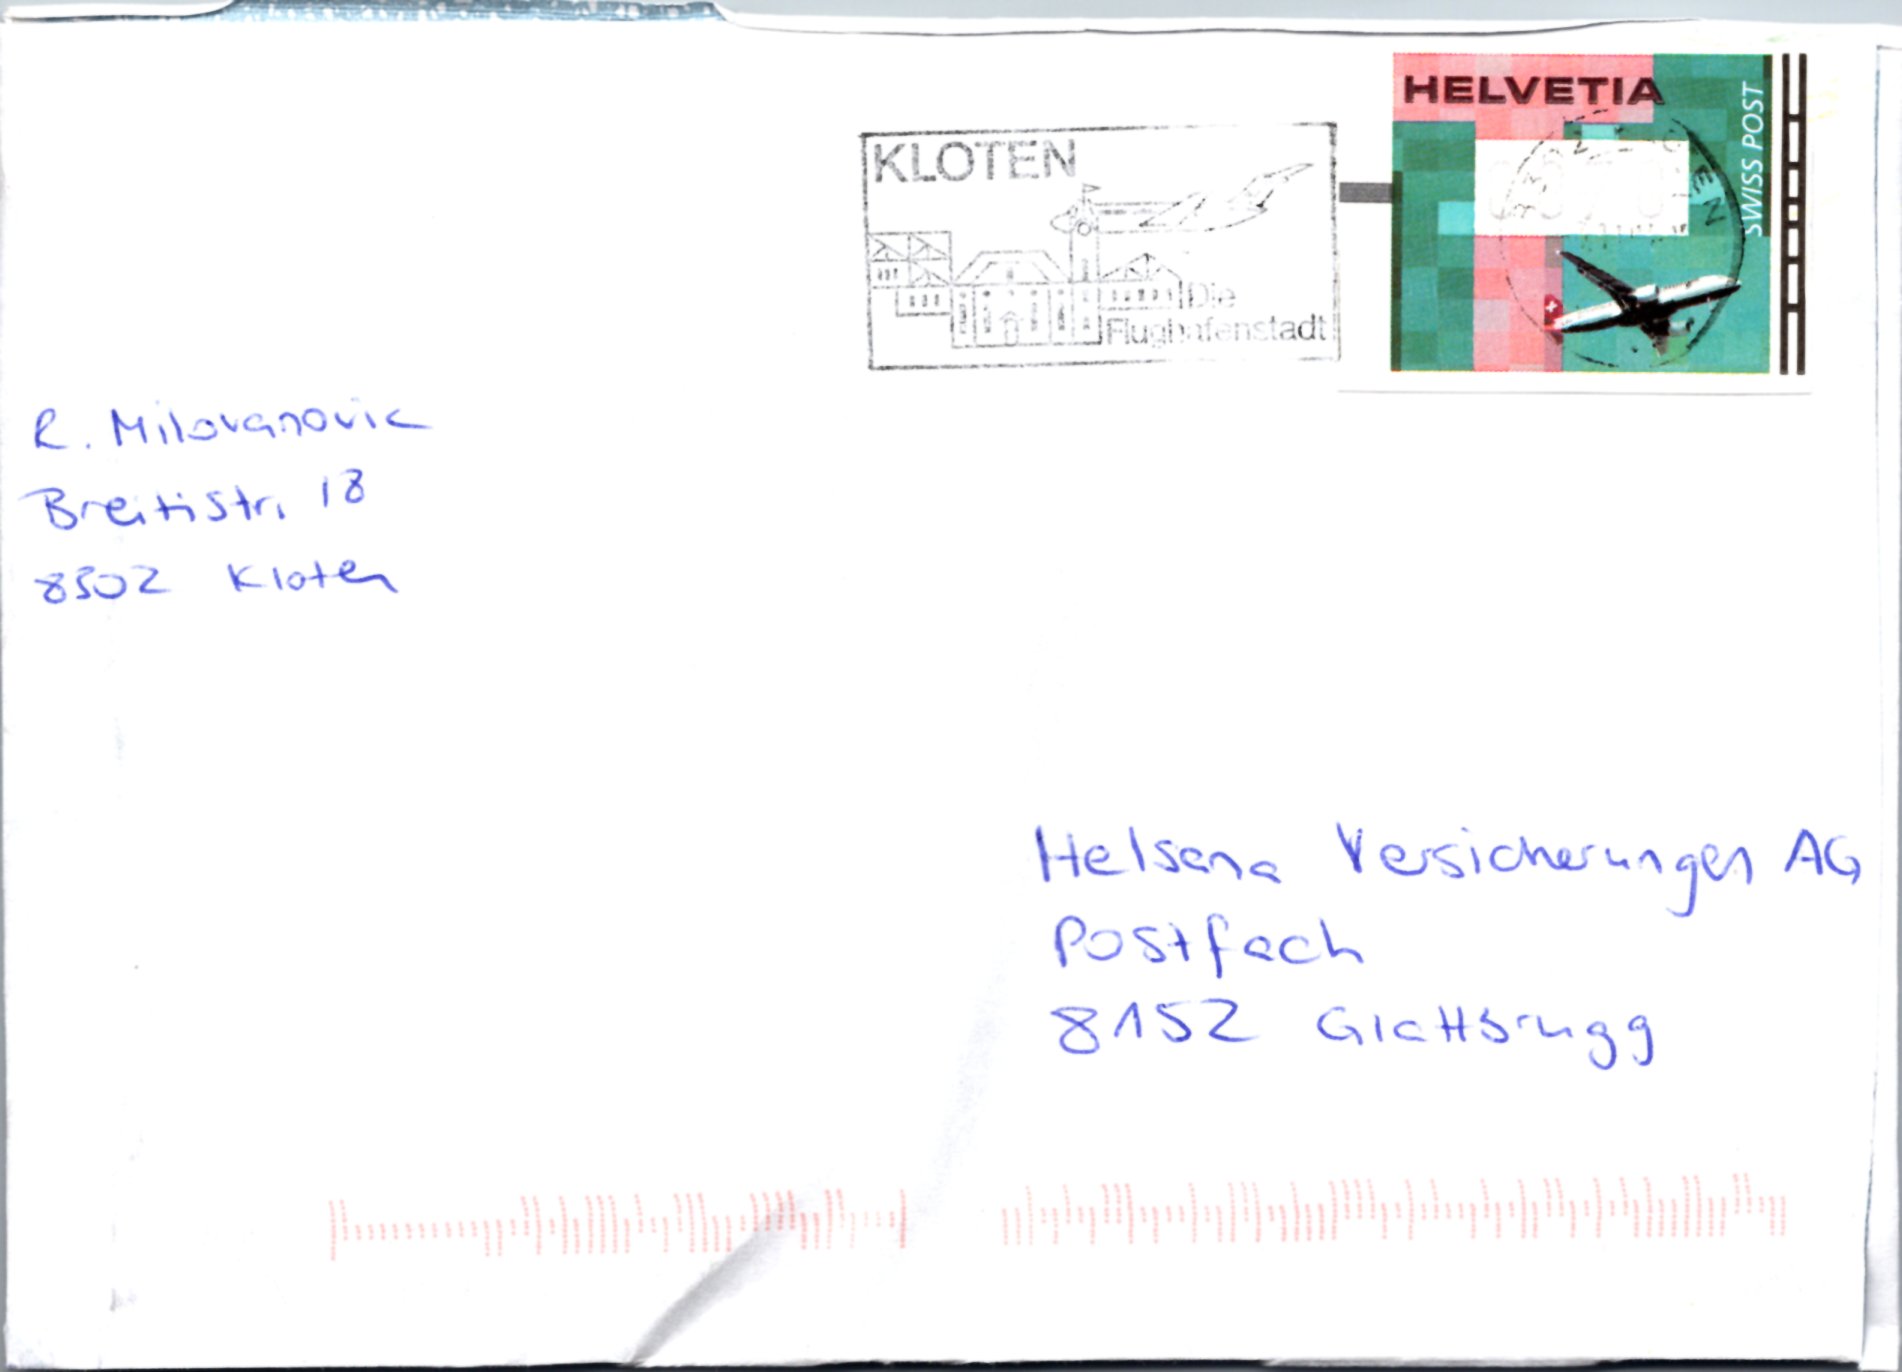 HELVETIA
SWISS POST
KLOTEN
Die
Flughafenstadt
R. Milovanovic
Breitistr. 18
8302 Kloten
Helsana Versicherungen AG
Postfach
8152 Glattbrugg